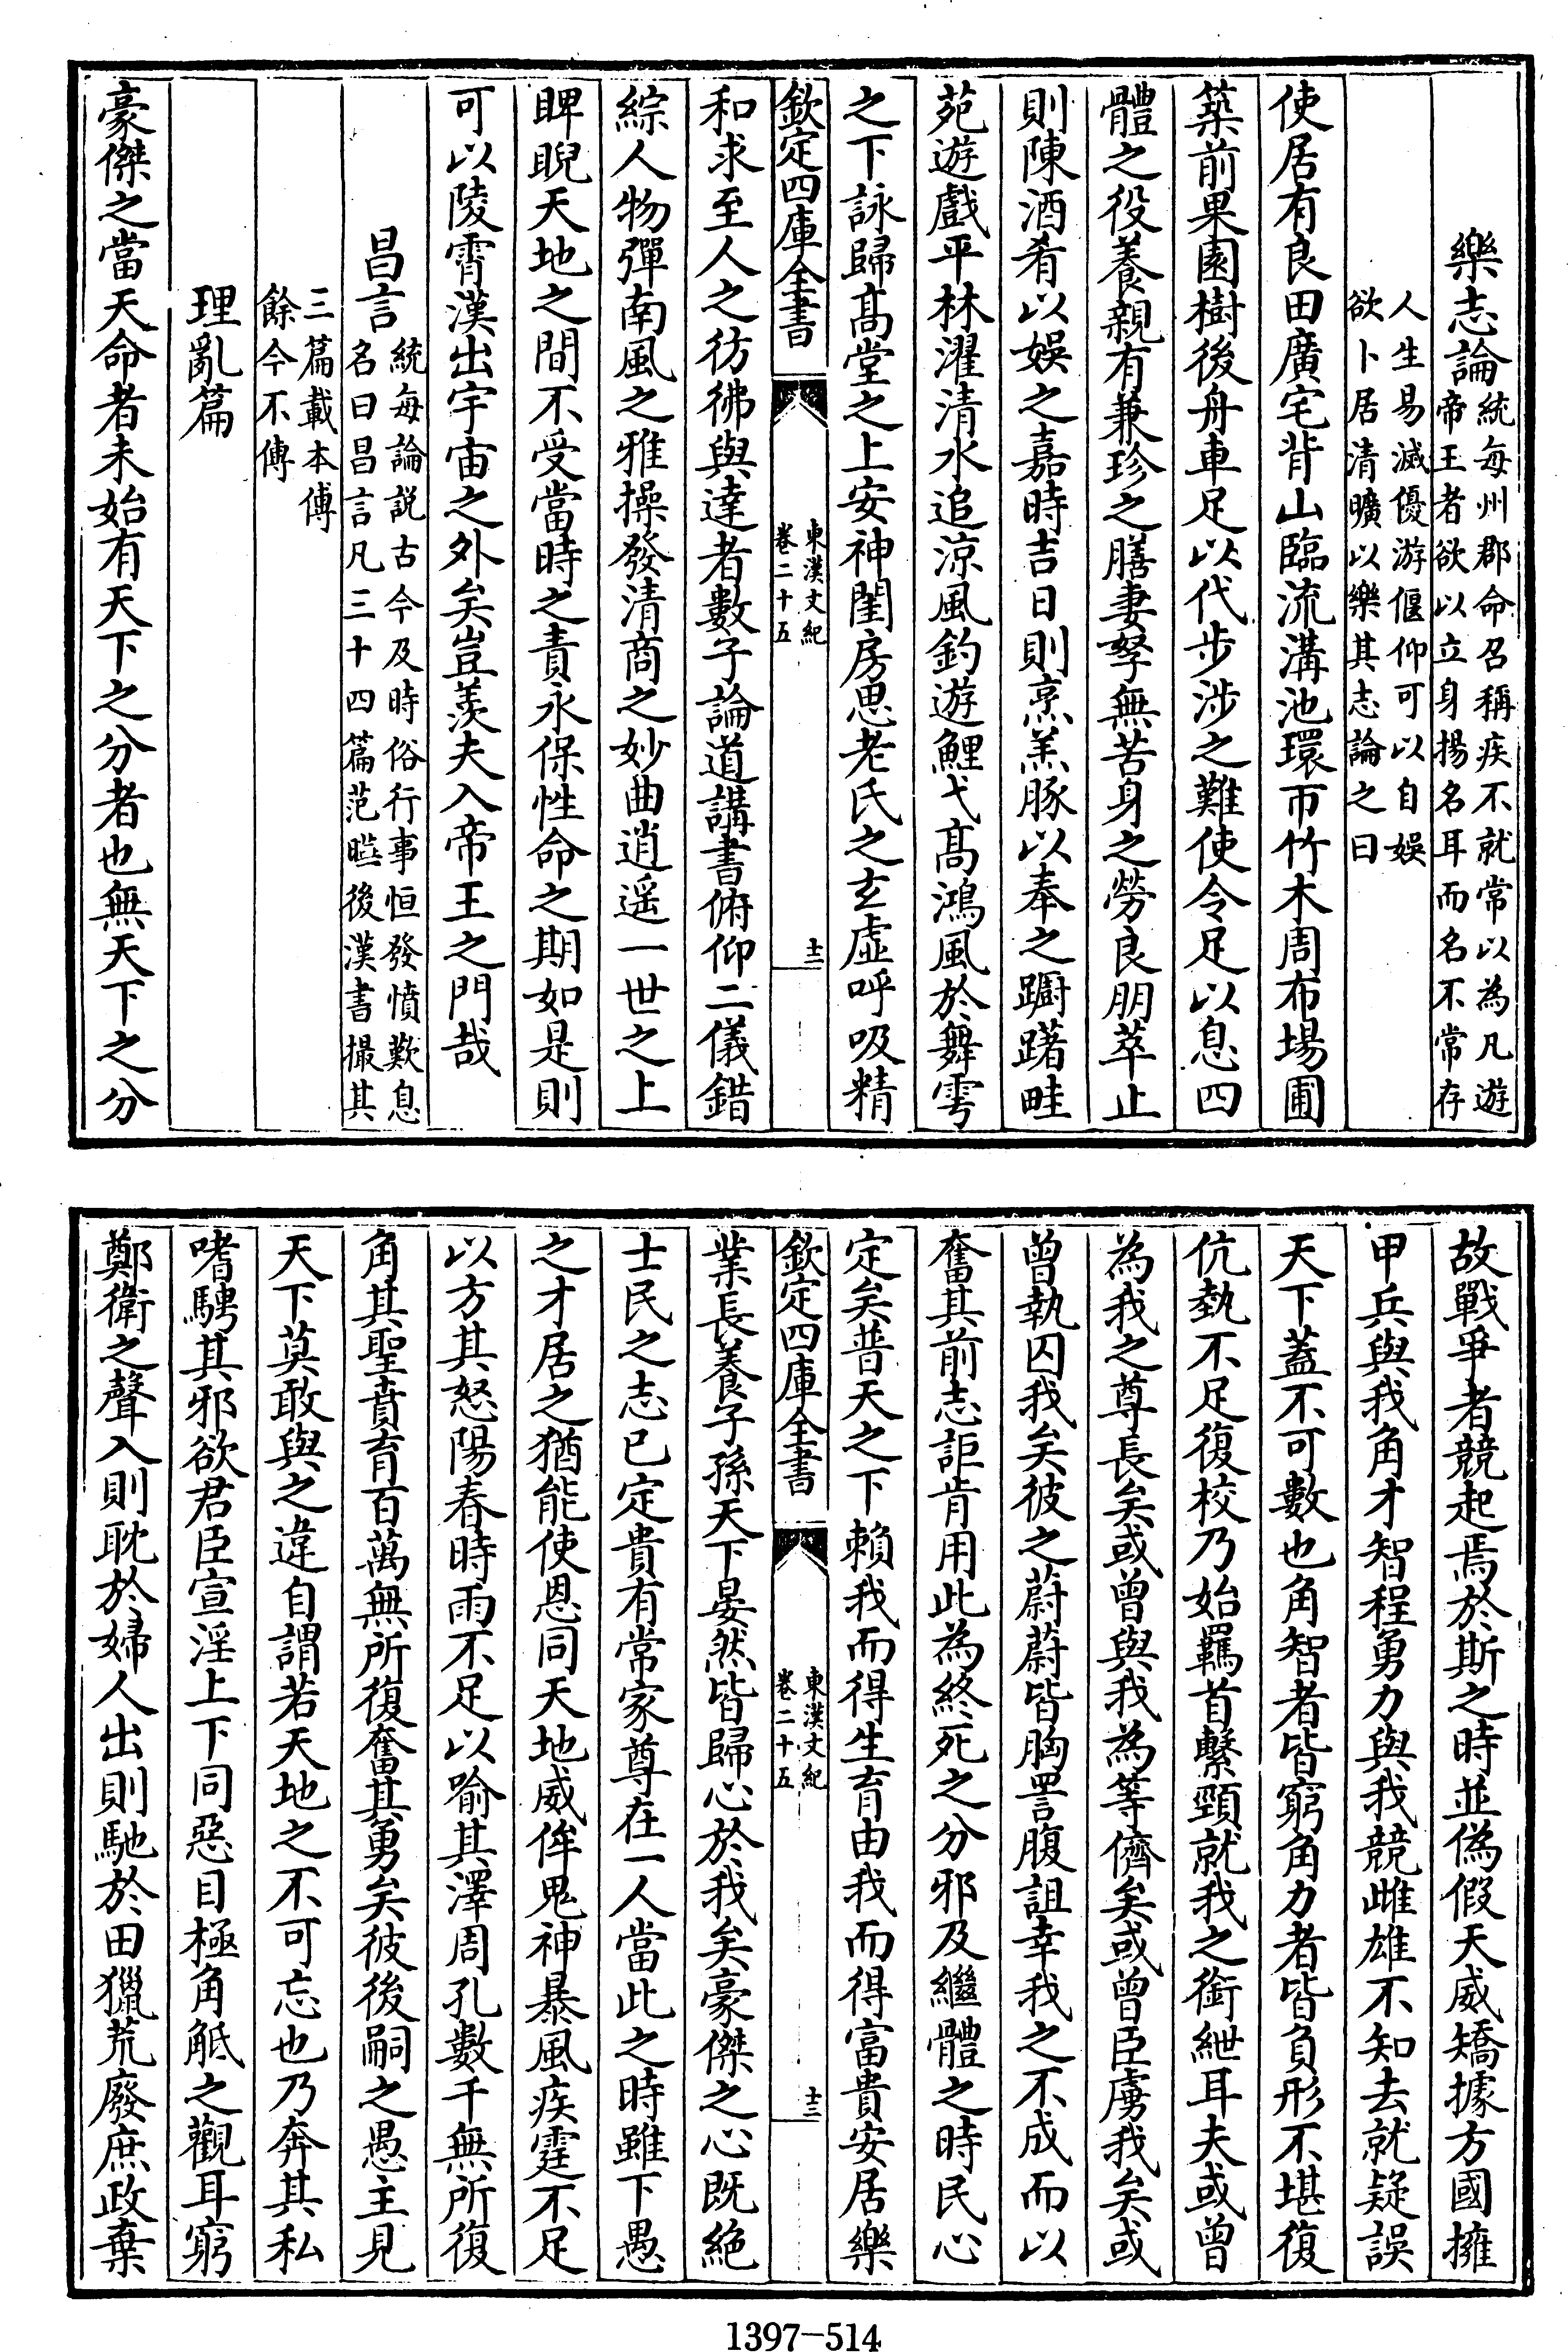 樂志論統每州郡命召稱疾不就常以為凡遊
帝王者欲以立身揚名耳而名不常存
人生易滅優游偃仰可以自娛
欲卜居清曠以樂其志論之曰
使居有良田廣宅背山臨流溝池環帀竹木周布場圃
築前果園樹後舟車足以代步涉之難使令足以息四
體之役養親有兼珍之膳妻孥無苦身之勞良朋萃止
則陳酒肴以娛之嘉時吉日則烹羔豚以奉之躕躇畦
苑遊戲平林濯清水追涼風釣遊鯉弋髙鴻風於舞雩
之下詠歸髙堂之上安神閨房思老氏之玄虛呼吸精
欽定四庫全書
東漢文紀
卷二十五
十二
和求至人之彷彿與達者數子論道講書俯仰二儀錯
綜人物彈南風之雅操發清商之妙曲逍遥一世之上
睥睨天地之間不受當時之責永保性命之期如是則
可以陵霄漢出宇宙之外矣豈羨夫入帝王之門哉
昌言統每論説古今及時俗行事恒發憤歎息
名曰昌言凡三十四篇范曄後漢書撮其
三篇載本傳
餘今不傳
理亂篇
豪傑之當天命者未始有天下之分者也無天下之分
故戰爭者競起焉於斯之時並偽假天威矯據方國擁
甲兵與我角才智程勇力與我競雌雄不知去就疑誤
天下蓋不可數也角智者皆窮角力者皆負形不堪復
伉埶不足復校乃始羈首繫頸就我之銜紲耳夫或曾
為我之尊長矣或曾與我為等儕矣或曾臣虜我矣或
曾執囚我矣彼之蔚蔚皆胸詈腹詛幸我之不成而以
奮其前志詎肯用此為終死之分邪及繼體之時民心
定矣普天之下賴我而得生育由我而得富貴安居樂
欽定四庫全書
東漢文紀
卷二十五
十三
業長養子孫天下晏然皆歸心於我矣豪傑之心既絶
士民之志已定貴有常家尊在一人當此之時雖下愚
之才居之猶能使恩同天地威侔鬼神暴風疾霆不足
以方其怒陽春時雨不足以喻其澤周孔數千無所復
角其聖賁育百萬無所復奮其勇矣彼後嗣之愚主見
天下莫敢與之違自謂若天地之不可忘也乃奔其私
嗜騁其邪欲君臣宣淫上下同惡目極角觝之觀耳窮
鄭衛之聲入則耽於婦人出則馳於田獵荒廢庶政棄
1397-514